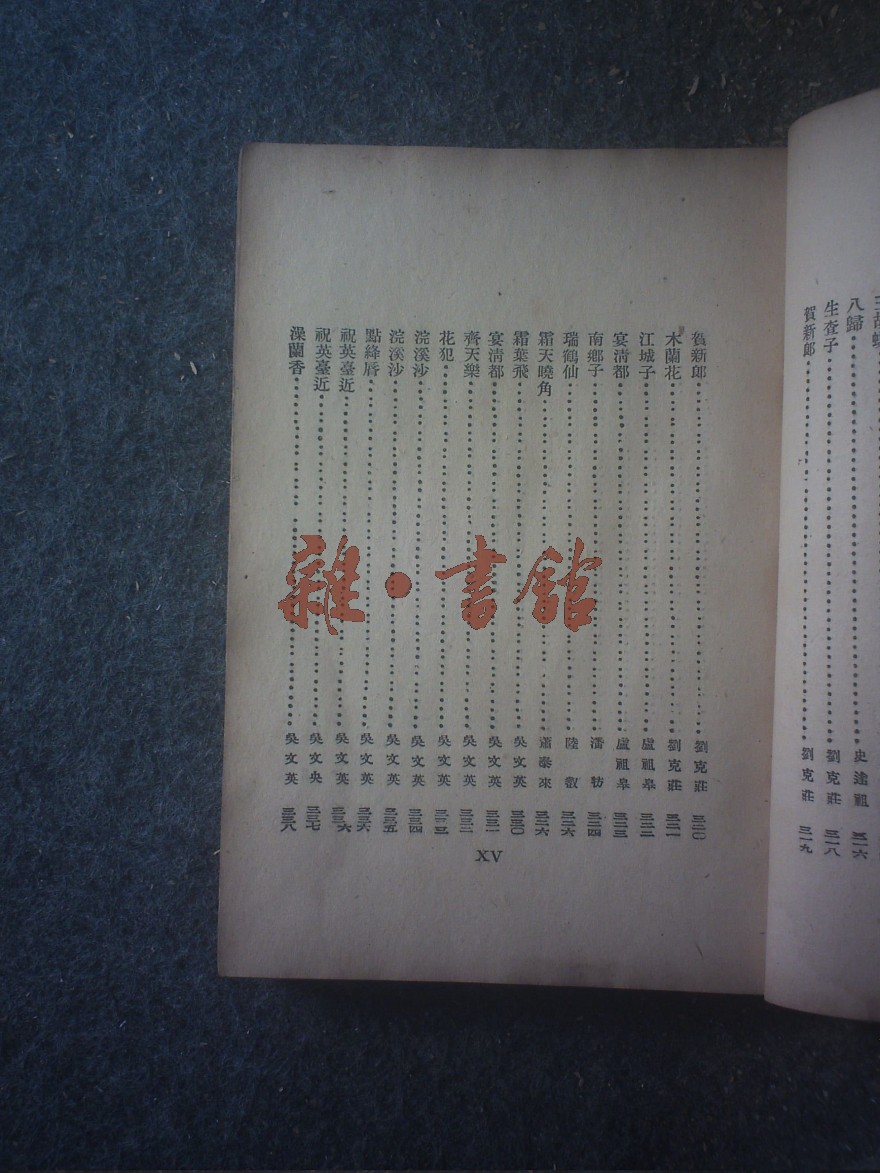 八歸 史達祖 三一六
生查子 劉克莊 三一八
賀新郎 劉克莊 三一九
賀新郎 劉克莊 三二〇
木蘭花 劉克莊 三二一
江城子 盧祖皋 三二二
宴清都 盧祖皋 三二三
南鄉子 潘牥 三二四
瑞鶴仙 陸叡 三二六
霜天曉角 蕭泰來 三二六
霜葉飛 吳文英 三三〇
宴清都 吳文英 三三一
齊天樂 吳文英 三三二
花犯 吳文英 三三三
浣溪沙 吳文英 三三四
浣溪沙 吳文英 三三五
點絳唇 吳文英 三三六
祝英臺近 吳文英 三三六
祝英臺近 吳文央 三三七
澡蘭香 吳文英 三三八
XV
雜·書館